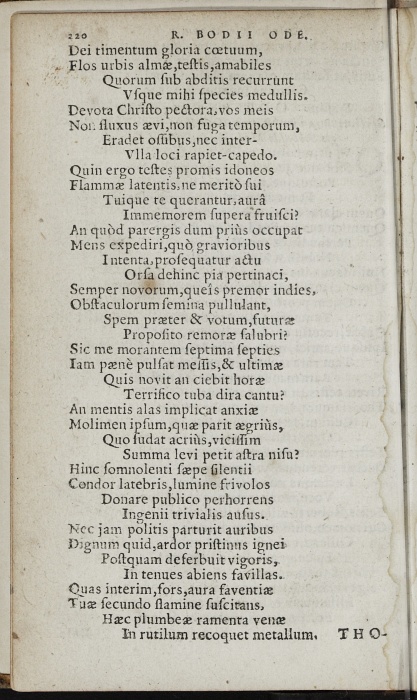 220 R. BODII ODE.
Dei timentum gloria cœtuum,
Flos urbis almæ, testis, amabiles
Quorum sub abditis recurrunt
Vsque mihi species medullis.
Devota Christo pectora, vos meis
Non fluxus ævi, non fuga temporum,
Eradet ossibus, nec inter-
Vlla loci rapiet-capedo.
Quin ergo testes promis idoneos
Flammæ latentis, ne meritò sui
Tuique te querantur, aurâ
Immemorem supera fruisci?
An quòd parergis dum priùs occupat
Mens expediri, quò gravioribus
Intenta, prosequatur actu
Orsa dehinc pia pertinaci,
Semper novorum, queîs premor indies,
Obstaculorum semina pullulant,
Spem præter & votum, futuræ
Proposito remoræ salubri?
Sic me morantem septima septies
Iam pænè pulsat messis, & ultimæ
Quis novit an ciebit horæ
Terrifico tuba dira cantu?
An mentis alas implicat anxiæ
Molimen ipsum, quæ parit ægriùs,
Quo sudat acriùs, vicissim
Summa levi petit astra nisu?
Hinc somnolenti sæpe silentii
Condor latebris, lumine frivolos
Donare publico perhorrens
Ingenii trivialis ausus.
Nec jam politis parturit auribus
Dignum quid, ardor pristinus ignei
Postquam deferbuit vigoris,
In tenues abiens favillas.
Quas interim, fors, aura faventiæ
Tuæ secundo flamine suscitans,
Hæc plumbeæ ramenta venæ
In rutilum recoquet metallum. THO-